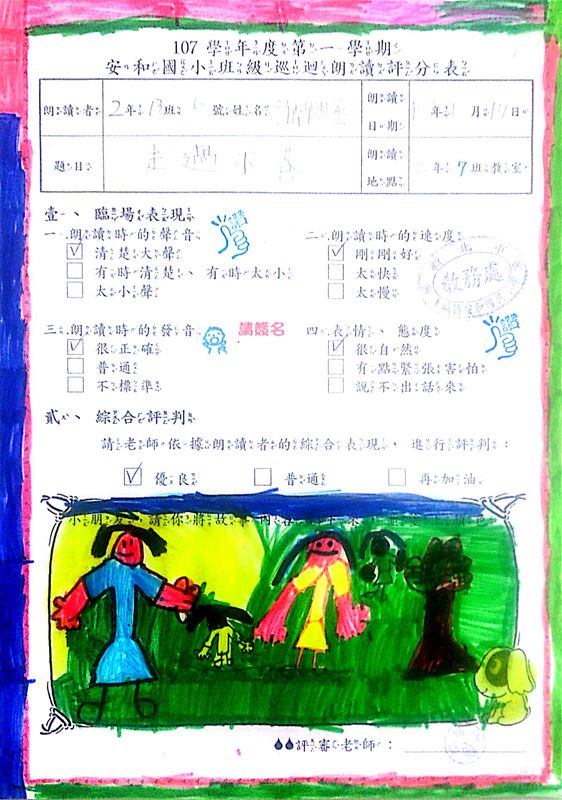 107 學年度第一學期
安和國小班級巡迴朗讀評分表
朗讀者 2年13班 號姓名 朗讀日期 年 月 日
題目 走過小巷 朗讀地點 年7班教室
壹、臨場表現
一.朗讀時的聲音 讚 二.朗讀時的速度
☑清楚大聲 ☑剛剛好
□有時清楚、有時太小 □太快
□太小聲 □太慢
教務處
三.朗讀時的發音 請簽名 四.表情、態度 讚
☑很正確 ☑很自然
□普通 □有點緊張害怕
□不標準 □說不出話來
貳、綜合評判
請老師依據朗讀者的綜合表現,進行評判:
☑優良 □普通 □再加油
小朋友,請你將故事內容
評審老師: